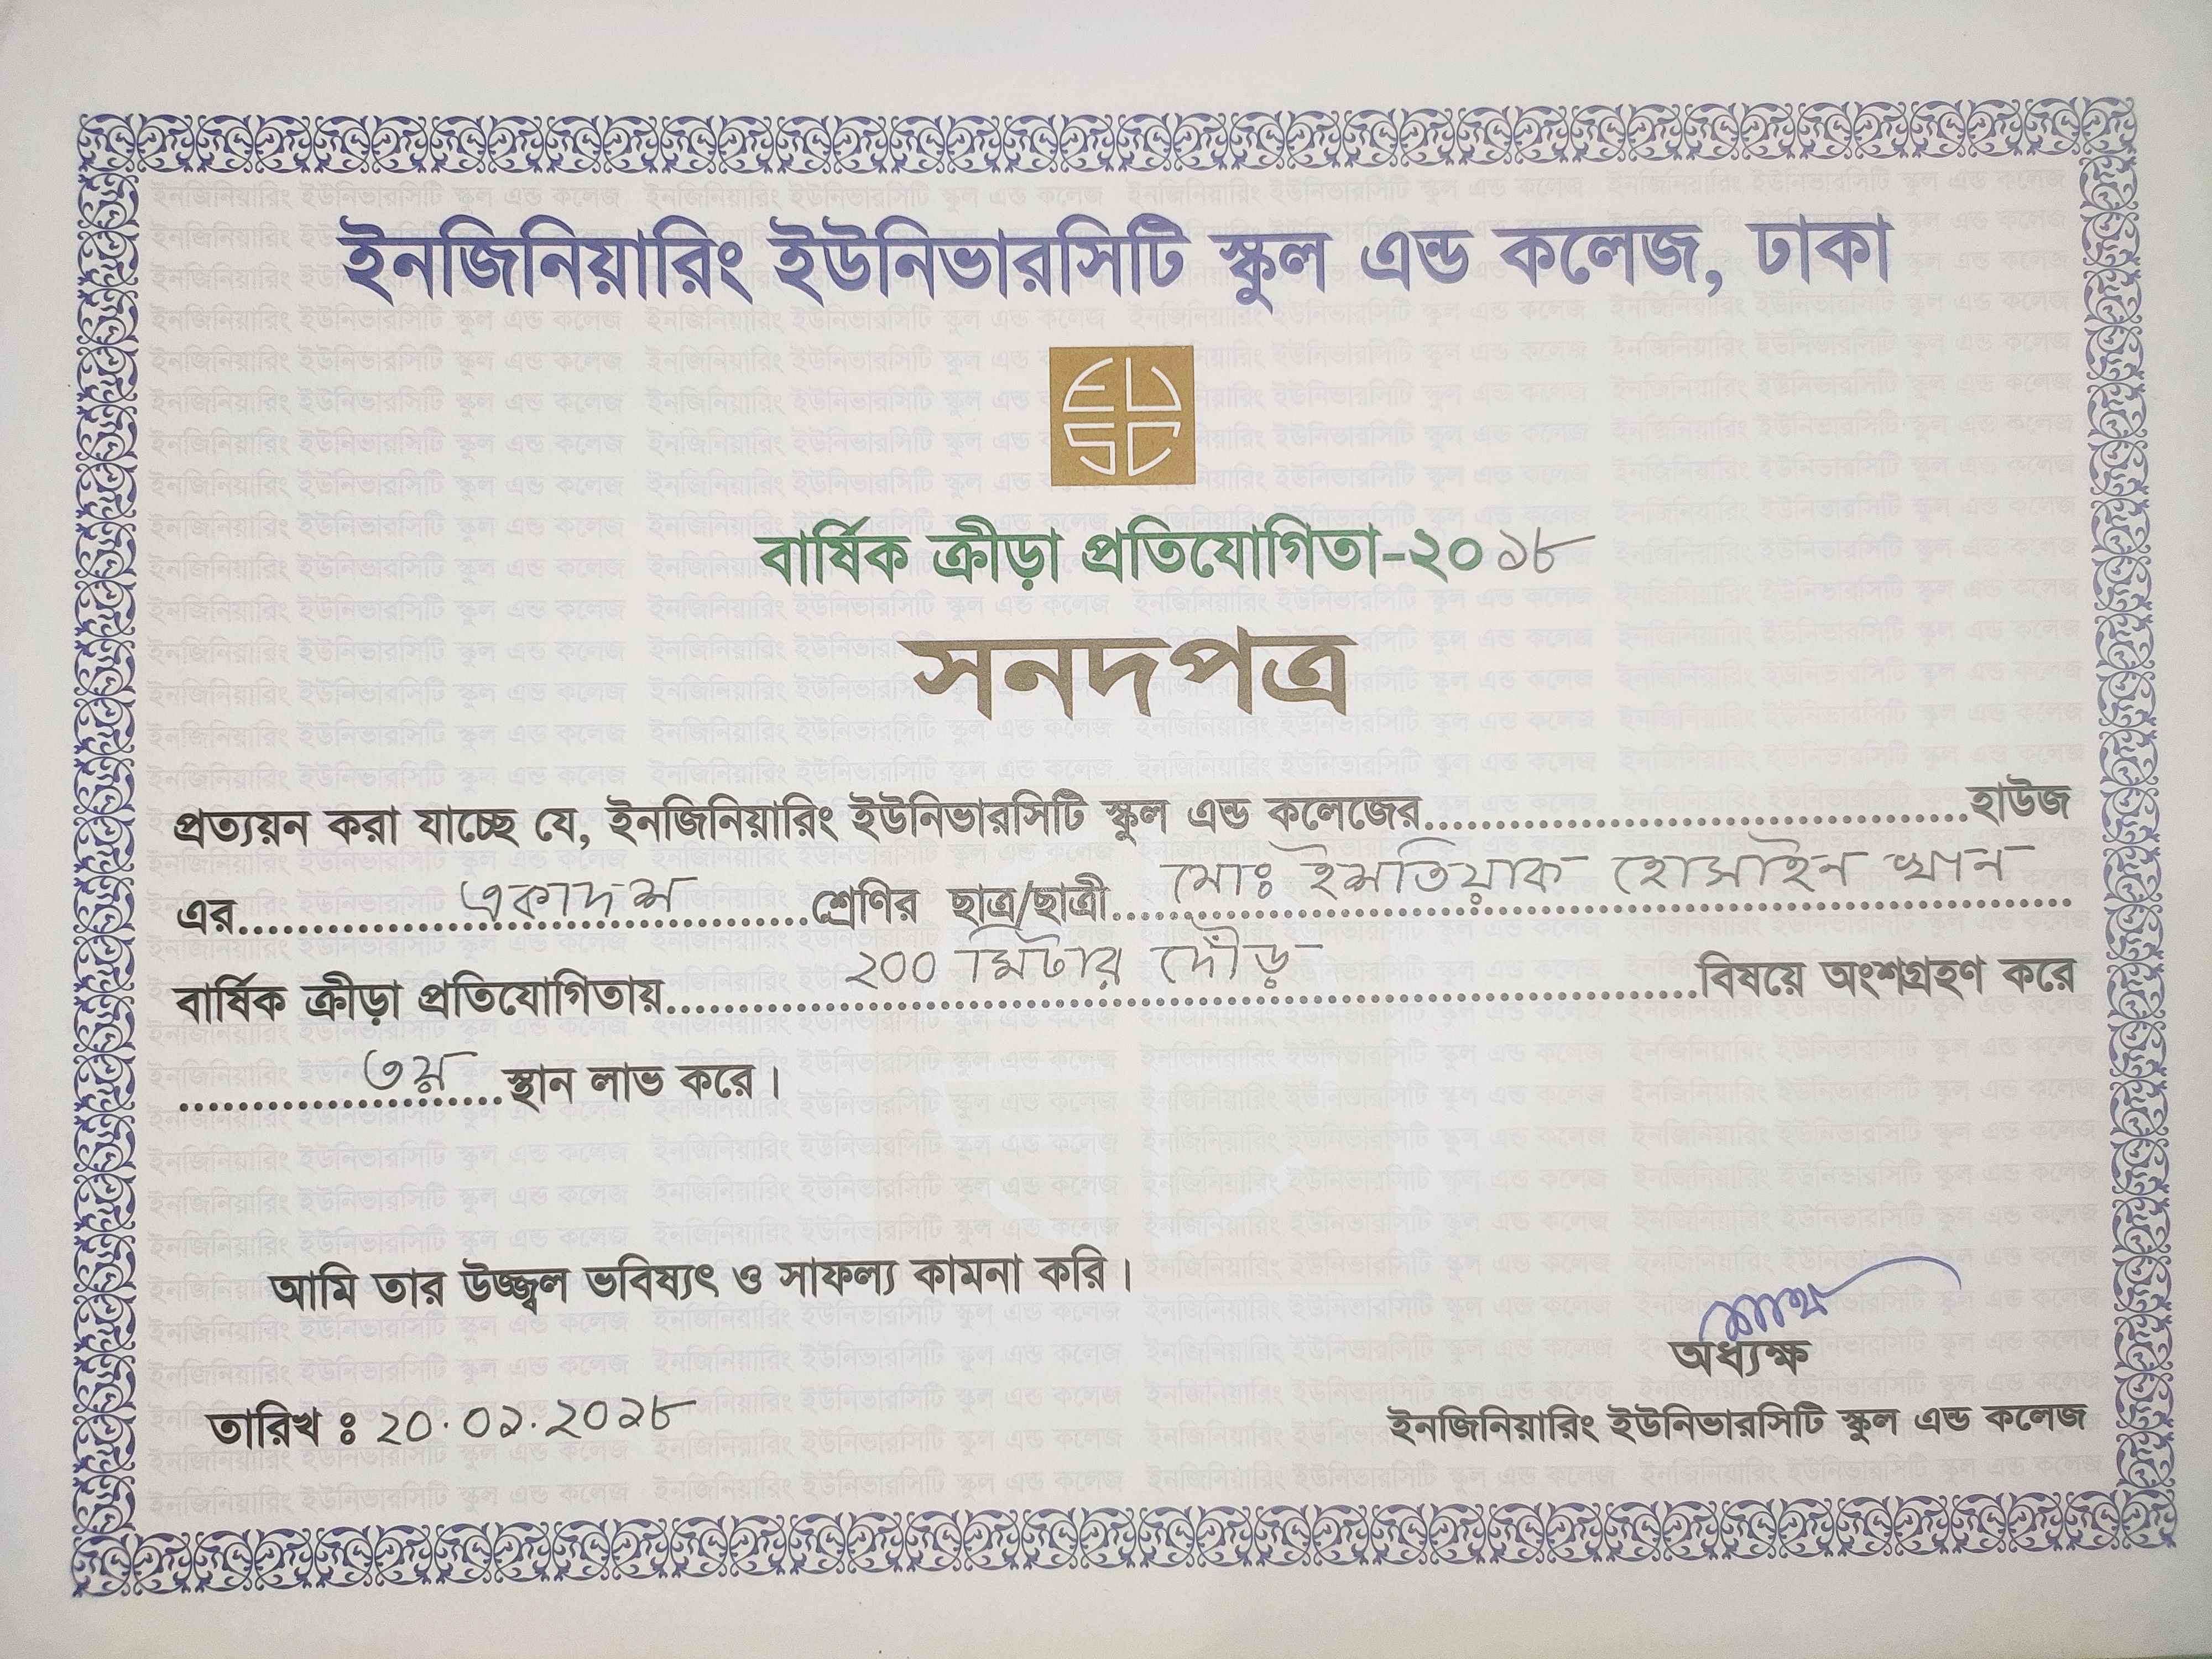 ইনজিনিয়ারিং ইউনিভারসিটি স্কুল এন্ড কলেজ, ঢাকা
EUSC
বার্ষিক ক্রীড়া প্রতিযোগিতা-২০১৮
সনদপত্র
প্রত্যয়ন করা যাচ্ছে যে, ইনজিনিয়ারিং ইউনিভারসিটি স্কুল এন্ড কলেজের..............................হাউজ
এর..........একাদশ..........শ্রেণির ছাত্র/ছাত্রী..........মোঃ ইশতিয়াক হোসাইন খান..........
বার্ষিক ক্রীড়া প্রতিযোগিতায়..........২০০ মিটার দৌড়..........বিষয়ে অংশগ্রহণ করে
..........৩য়..........স্থান লাভ করে।
আমি তার উজ্জ্বল ভবিষ্যৎ ও সাফল্য কামনা করি।
অধ্যক্ষ
তারিখ ঃ ২০.০১.২০১৮
ইনজিনিয়ারিং ইউনিভারসিটি স্কুল এন্ড কলেজ